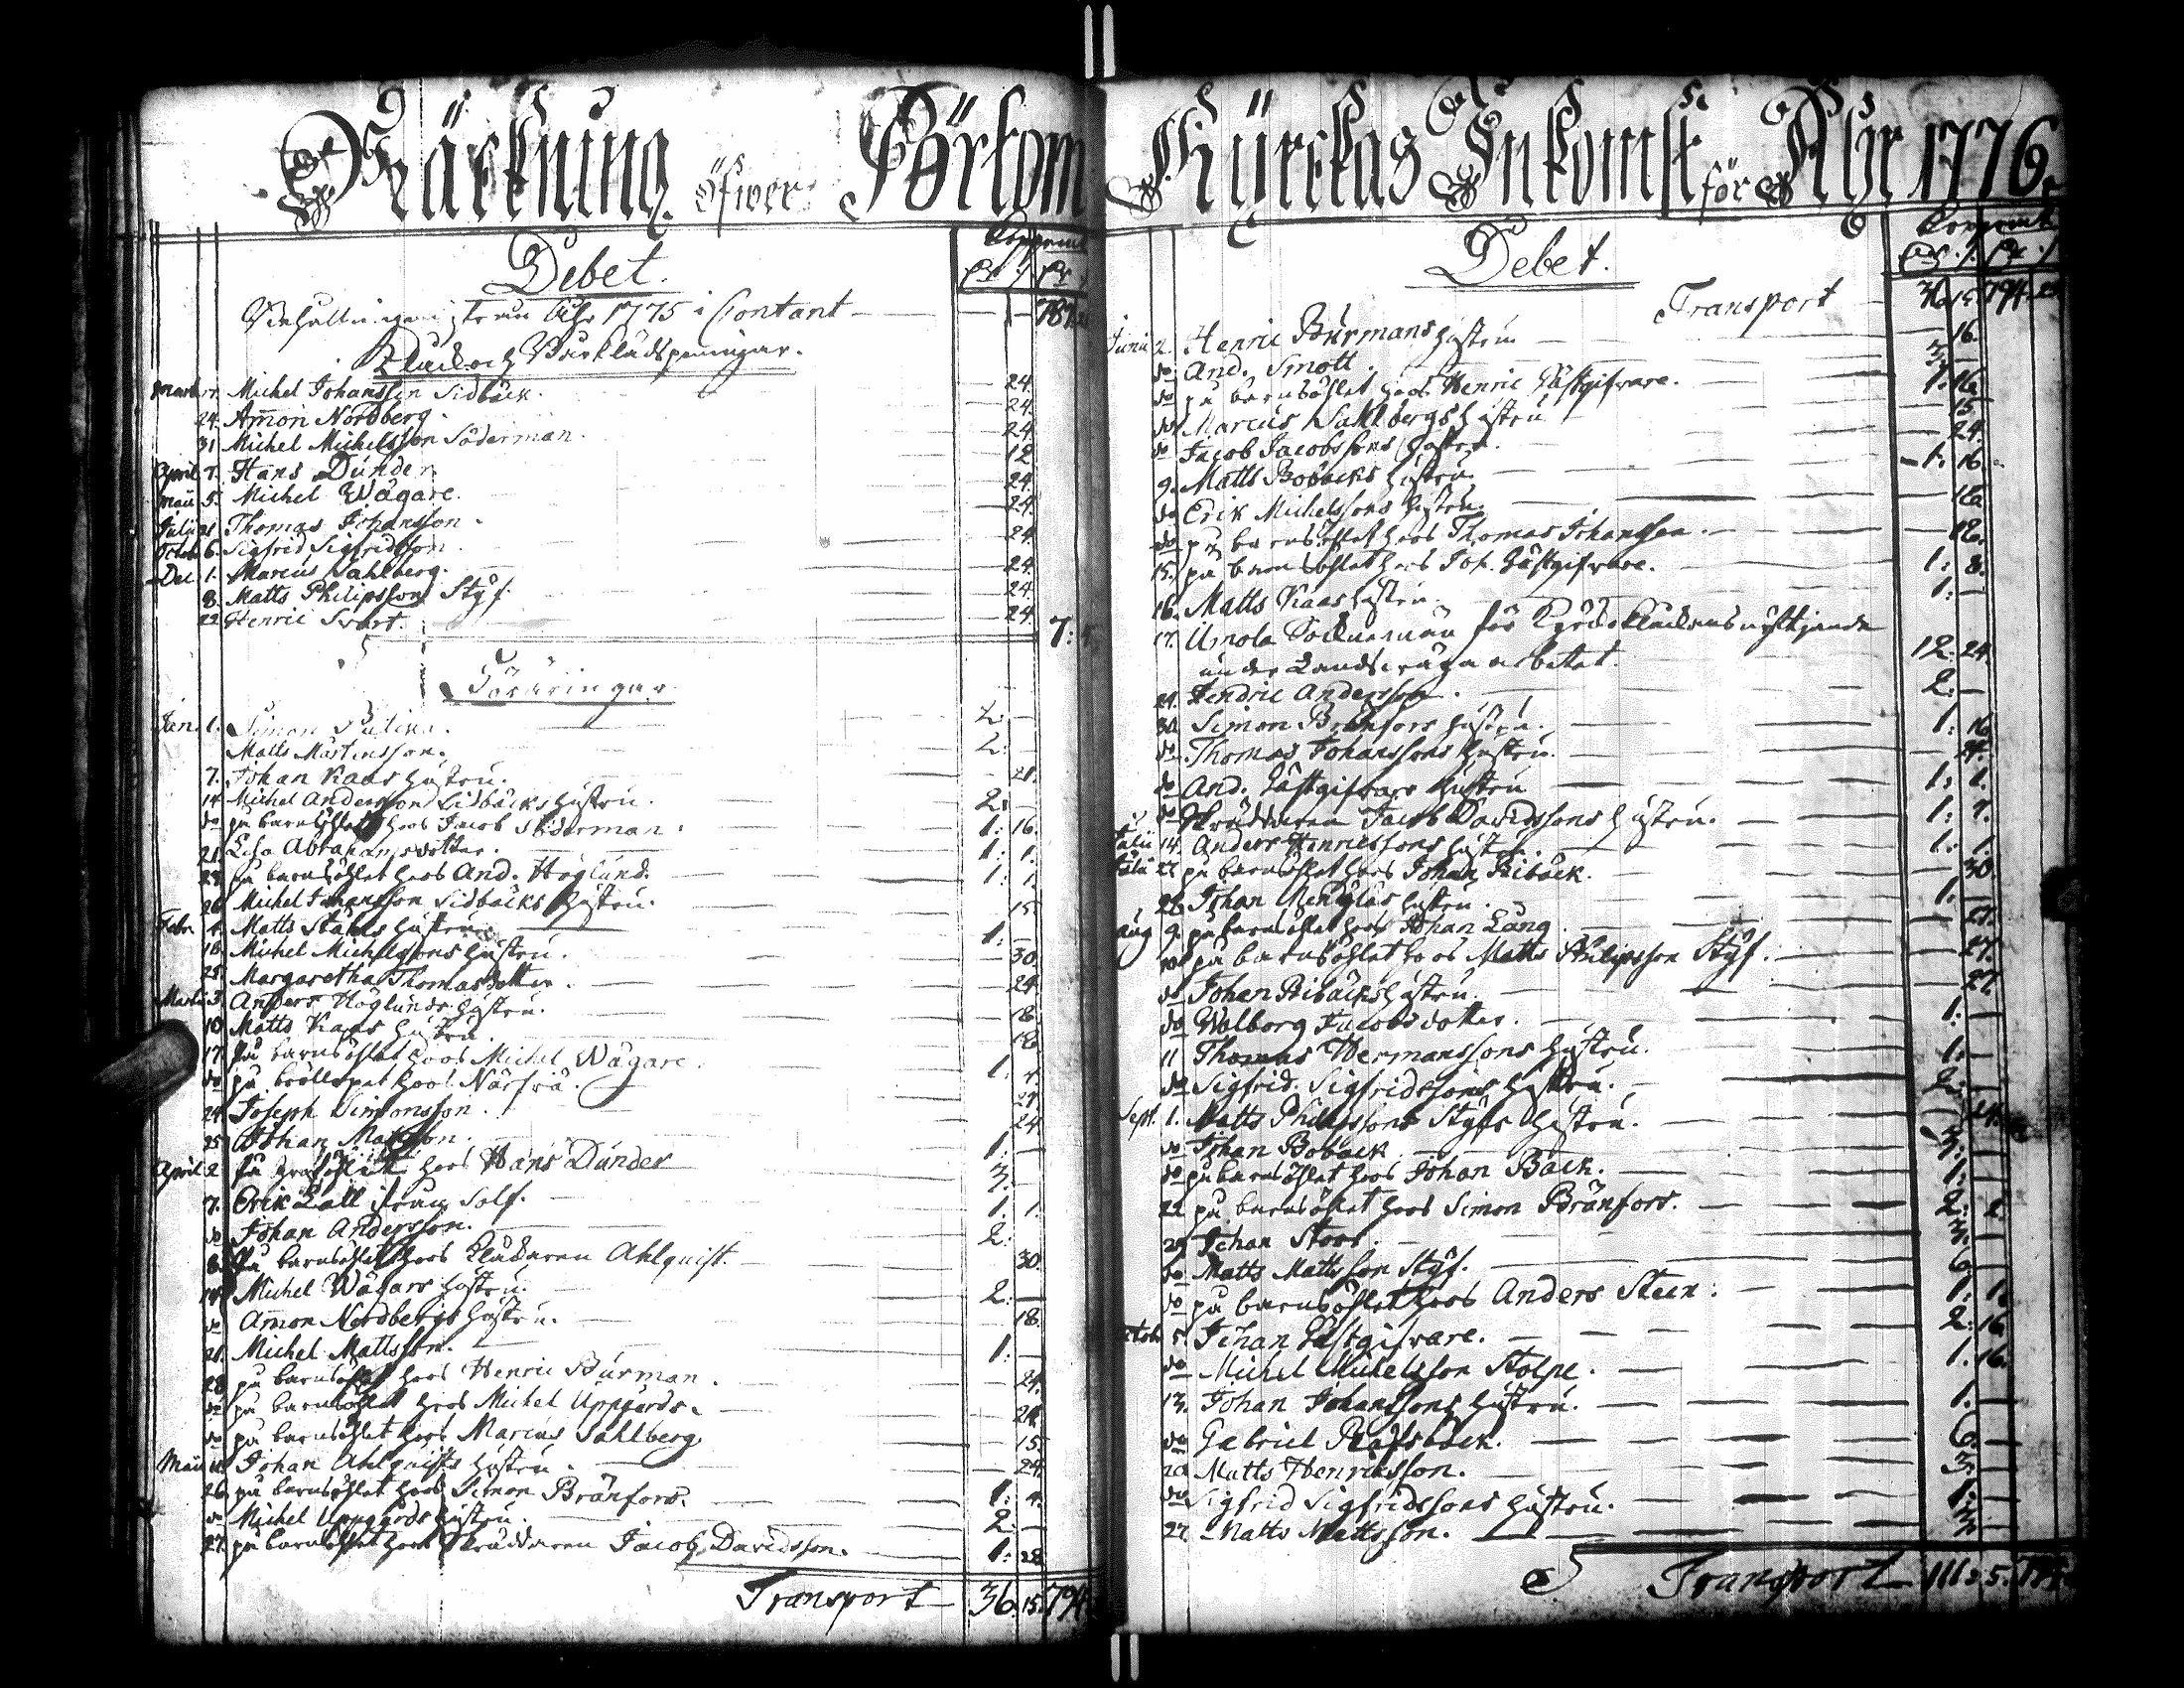 Räckning öfwer Pörtom
Debet.
Behållningen ifrån Åhr 1775 i Contant — 787
Klock och Bårklädspenningar.
Martii 17. Michel Johansson Sidbäck. — 24.
24. Amon Nordberg. — 24.
31 Michel Michelsson Söderman. — 24.
April 7. Hans Dunder — 12
Maii 5. Michel Wägare. — 24.
Julii 21 Thomas Johansson. — 24.
Octob. 6. Sigfrid Sigfridsson — 24
Dec. 1. Marcus Sahlberg. — 24.
8. Matts Philipsson Styf. — 24.
22 Henric Svart. — 24 7:
Föräringar
Jan. 1. Simon — 2. —
Matts Mårtensson. — 2. —
7. Johan Kaas hustru. — 21.
14. Michel Andersson Sidbäcks hustru. — 2: —
do på barnsöhlet hoos Jacob Söderman. — 1: 16.
21. Lisa Abrahamsdotter. — 1: 1.
23 på barnsöhlet hoos And. Höglund. — 1: 1.
26 Michel Johansson Sidbäcks hustru. — 15.
Febr. 4. Matts Ståhls hustru — 1: —
18. Michel Michelssons hustru. — 30.
25. Margaretha Thomasdotter. — 24
Martii 3. Anders Höglunds hustru. — 18.
10 Matts Kaas hustru.
17. På barnsöhlet hoos Michel Wägare. — 1:
do på bröllopet hoos Närfvä.
24. Joseph Simonsson. — 24
25 Johan Mattsson. — 1: —
April 2 På hoos Hans Dunder — 3. —
7. Erik Lall ifrån Solf. — 1. 1.
do Johan Andersson. — 2:
8. På barnsöhlet hoos Klockaren Ahlquist. — 30.
14. Michel Wägars hustru. — 2: —
do Amon Nordbergs hustru. — 18.
21. Michel Mattsson. — 1: —
28 på barnsöhlet hoos Henric Burman. — 24.
do på barnsöhlet hoos Michel Uppgårds. — 24.
do på barnsöhlet hoos Marcus Sahlberg — 15.
Maii Johan Ahlquists hustru. — 24.
26. på barnsöhlet hoos Simon Brånfors. — 1: 4.
do Michel Uppgårds hustru. — 2: —
27. på barnsöhlet hoos Skräddaren Jacob Davidsson. — 1: 28
Transport — 36. 15. 794.
Kürckas Inkomst för Åhr 1776.
Debet.
Transport — 36. 15. 794.
Junii 2. Henric Burmans hustru — 16.
do And. Smott. — 3. —
do på barnsöhlet hoos Henric Gästgifvare. — 1. 16.
do Marcus Sahlbergs hustru — 15.
do Jacob Jacobssons hustru. — 24.
9. Matts Bobäcks hustru. — 1. 16.
do Erik Michelssons hustru. — 16.
do på barnsöhlet hoos Thomas Johansson. — 12.
15. på barnsöhlet hoos Joh. Gästgifvare. — 1: 8.
16. Matts Kaas hustru. — 1: —
17. Sockneman för Kyrckoklockans nyttjande
under Landsvägaarbetet. — 12. 24.
24. Hendric Andersson. — 2. —
30. Simon Brånfors hustru. — 1. 16.
do Thomas Johanssons hustru. — 24.
do And. Gästgifvars hustru — 1: 1.
do Skräddaren Jacob Davidssons hustru. — 1: 7.
Julii 14. Anders Henricssons hustru. — 1: 1.
Julii 27 på barnsöhlet hoos Johan Ribäck. — 30.
28. Johan Menglas hustru. — 1. —
Aug. 9. på barnsöhlet hoos Johan Lång. — 27.
10. på barnsöhlet hoos Matts Philipsson Styf. — 27.
do Johan Ribäcks hustru. — 27.
do Walborg Jacobsdotter. — 1. —
11 Thomas Hermanssons hustru. — 1: —
do Sigfrid Sigfridssons hustru. — 2. —
Sept. 1. Matts Philipssons Styfs hustru. — 24.
do Johan Bobäck. — 3. —
do på barnsöhlet hoos Johan Bäck. — 1. —
22 på barnsöhlet hoos Simon Brånfors. — 2. 2.
29 Johan Stoor. — 3. —
do Matts Mattsson Styf. — 6. —
do på barnsöhlet hoos Anders Steen: — 1. 1.
Octob. 5. Johan Gästgifvare. — 2. 16.
do Michel Michelsson Stolpe. — 1. 16.
13. Johan Johanssons hustru. — 1. —
do GabrielRäfsbäck. — 6. —
20 Matts Henricsson. — 3. —
do Sigfrid Sigfridssons hustru. — 1. —
27. Matts Mattsson. — 3. —
Transport — 111: 5.